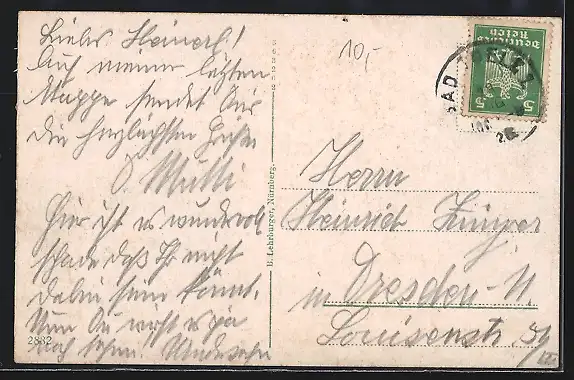 Lieber Heinerl!
Auf meiner letzten
Etappe sendet Dir
die herzlichsten Grüße
D. Mutti
Hier ist es wundervoll
schade daß Ihr nicht
dabei sein könnt.
Nun Du wirst es ja
noch sehen.
2882
B. Lehrburger, Nürnberg.
10,-
Deutsches
Reich
5 5
BAD
Herrn
Heinrich
in Dresden-N.
Louisenstr.